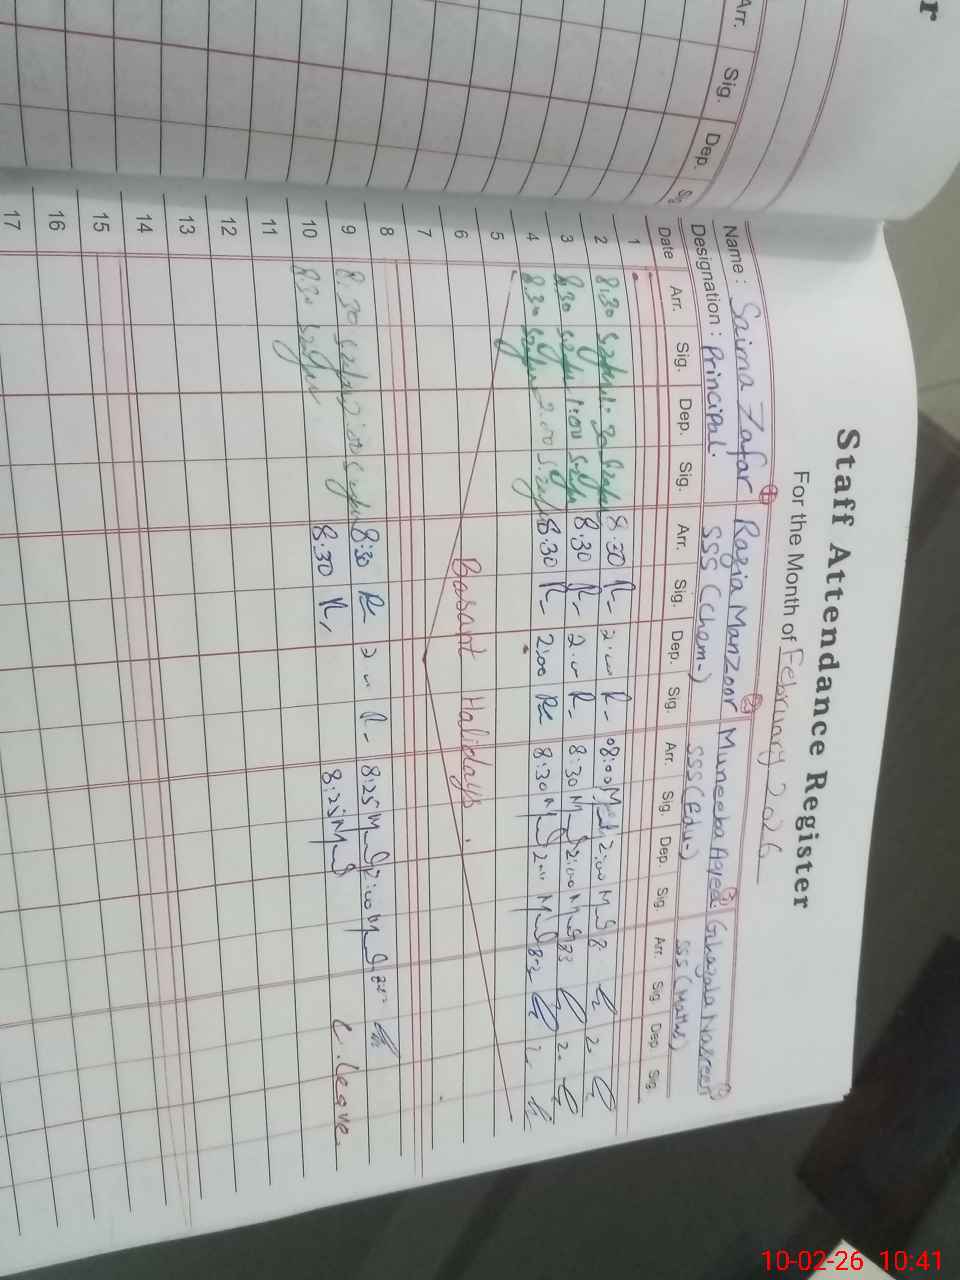 r
Arr. Sig. Dep. Sig
Staff Attendance Register
For the Month of February 2026
Name : Saima Zafar ① Razia Manzoor ② Muneeba Aqeel ③ Ghazala Nasreen
Designation : Principal. SSS (Chem-) SSS (Edu-) SSS (Maths)
Date Arr. Sig. Dep. Sig. Arr. Sig. Dep. Sig. Arr. Sig. Dep. Sig. Arr. Sig Dep Sig.
1
2 8:30 8:30 R- R- 08:00 2:00 8 2.
3 8:30 1:00 8:30 R- R- 8:30 2:00 2.
4 8:30 2:00 8:30 R- 2:00 8:30
5
6 Basant Halidays.
7
8
9 8:30 8:30 R- 8:25 2:00
10 8:30 8:30 R, 8:25 C. leave.
11
12
13
14
15
16
17
10-02-26 10:41